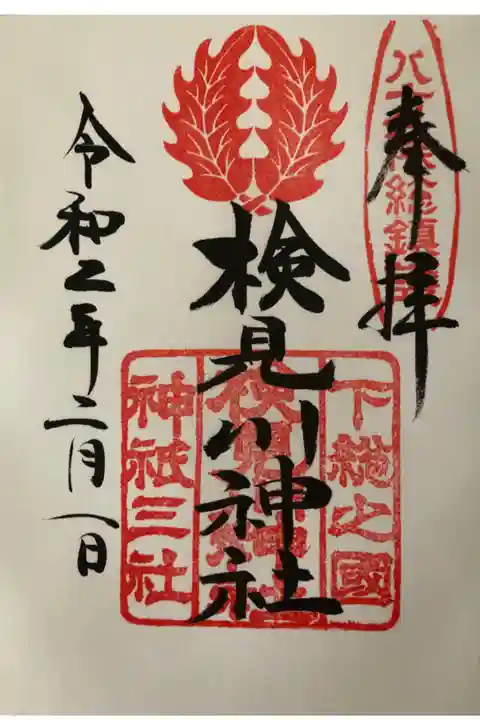 八方除総鎮護
奉拝
下総之國
検見川神社
検見川神社
神祇三社
令和二年二月一日